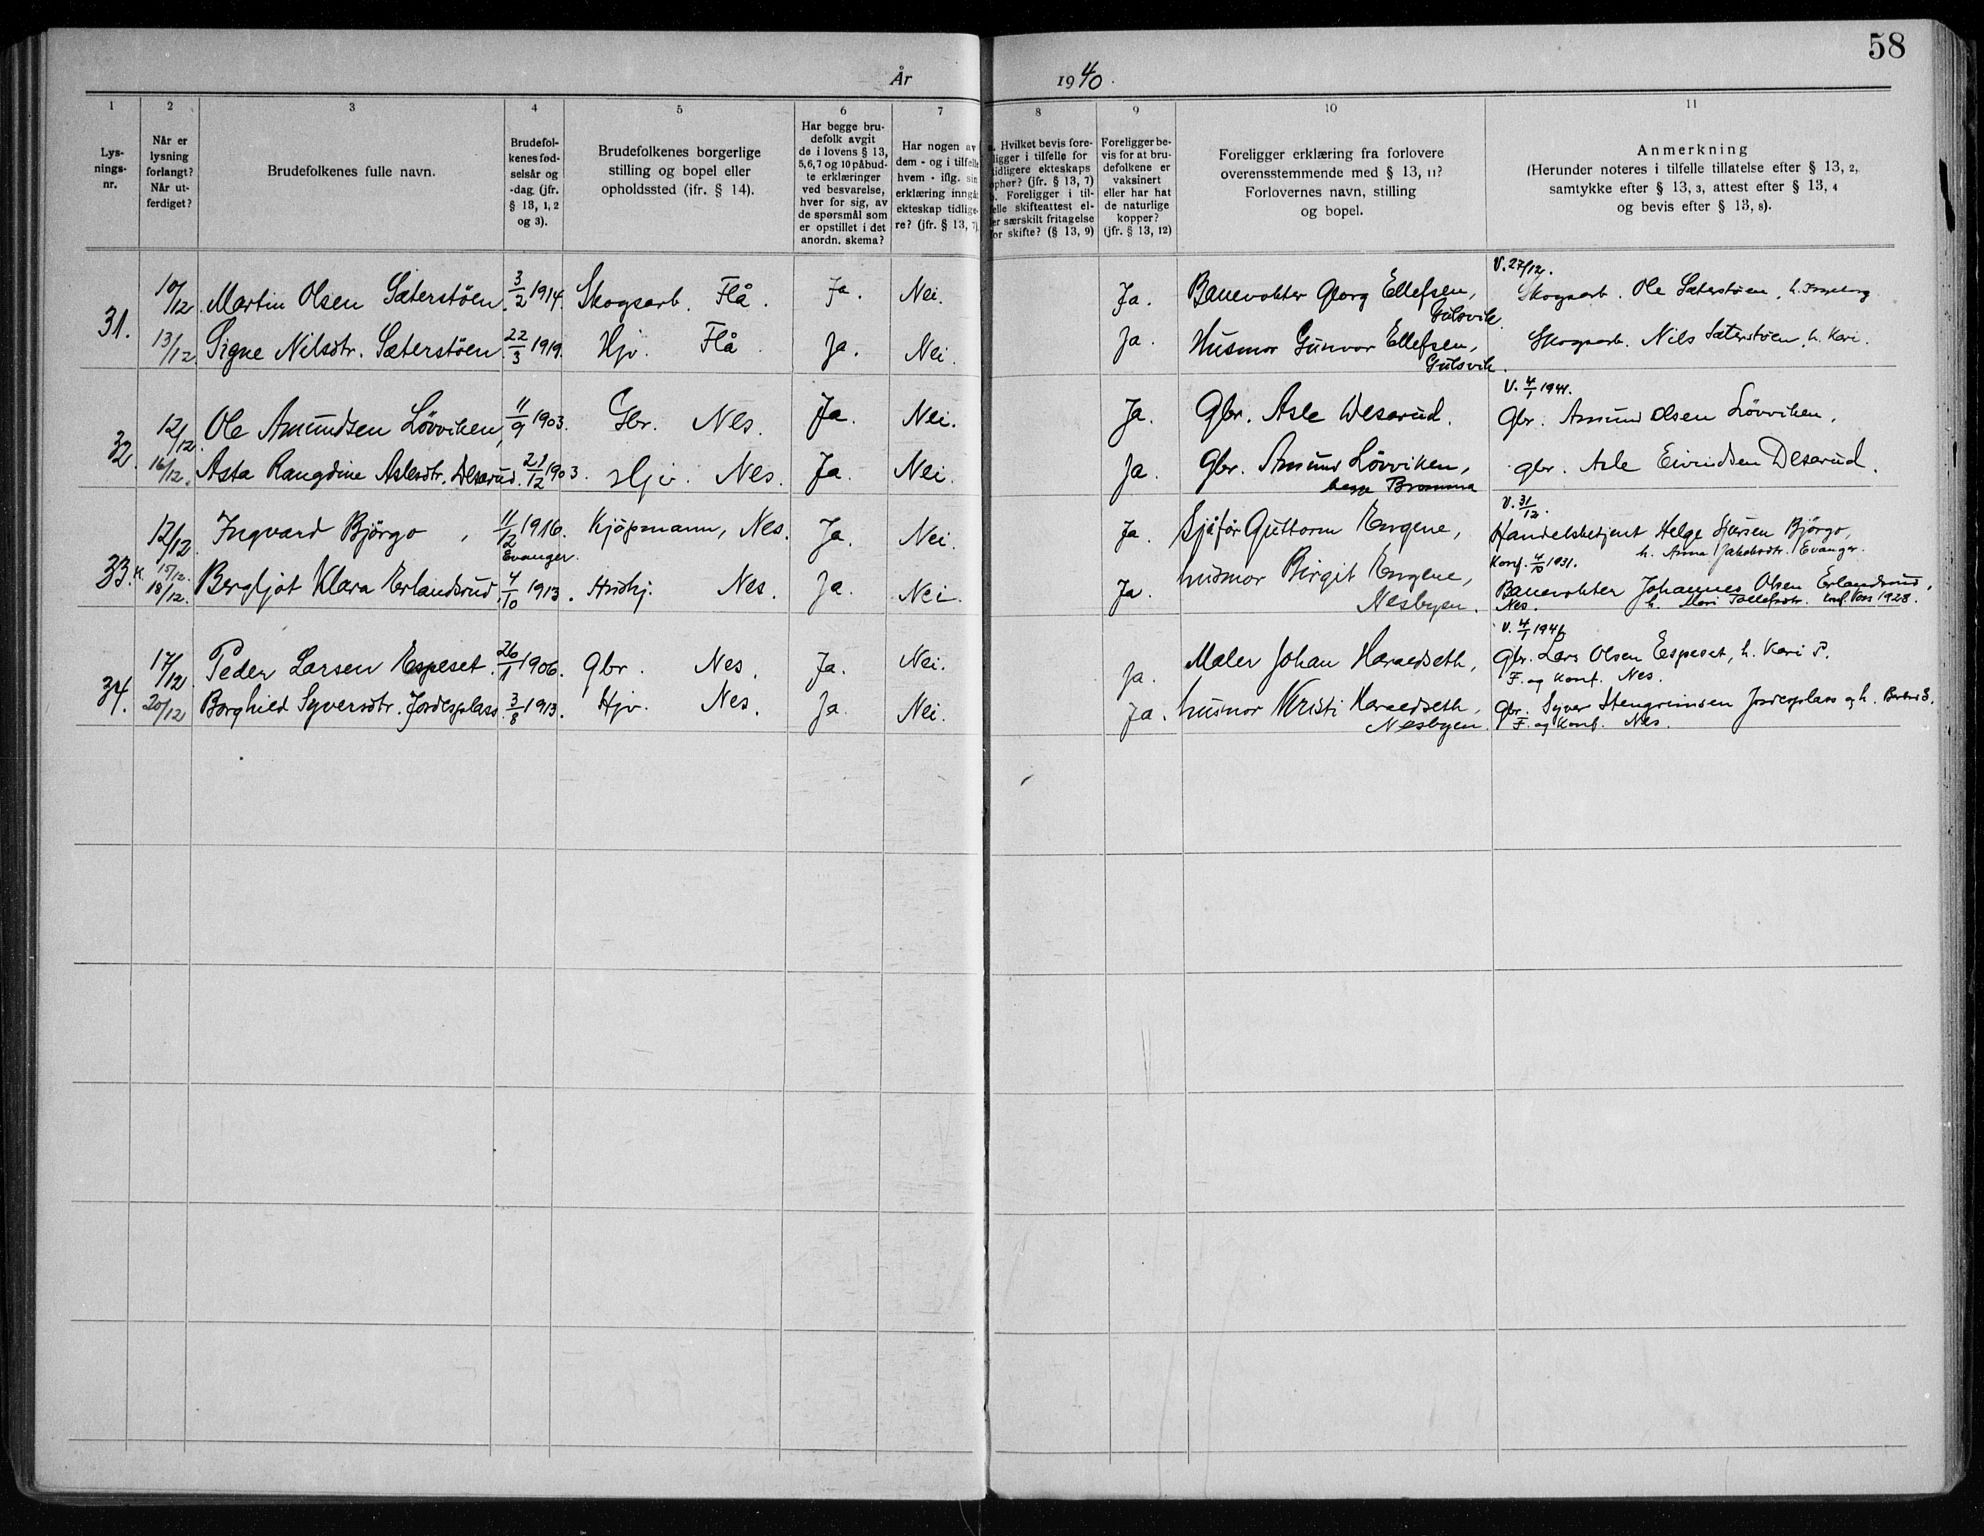 58
År 1940.
1 2 3 4 5 6 7 8 9 10 11
Lys-
nings-
nr.
Når er
lysning
forlangt?
Når ut-
ferdiget?
Brudefolkenes fulle navn.
Brudefol-
kenes fød-
selsår og
-dag (jfr.
§ 13, 1, 2
og 3).
Brudefolkenes borgerlige
stilling og bopel eller
opholdssted (jfr. § 14).
Har begge bru-
defolk avgit
de i lovens § 13,
5,6,7 og 10 påbud-
te erklæringer
ved besvarelse,
hver for sig, av
de spørsmål som
er opstillet i det
anordn. skema?
Har nogen av
dem - og i tilfelle
hvem - iflg. sin
erklæring inngår
ekteskap tidlige-
re? (jfr. § 13, 7)
a. Hvilket bevis fore-
ligger i tilfelle for
tidligere ekteskaps
ophør? (jfr. § 13, 7)
b. Foreligger i til-
felle skifteattest el-
ler særskilt fritagelse
for skifte? (§ 13, 9)
Foreligger be-
vis for at bru-
defolkene er
vaksinert
eller har hat
de naturlige
kopper?
(jfr. § 13, 12)
Foreligger erklæring fra forlovere
overensstemmende med § 13, 11?
Forlovernes navn, stilling
og bopel.
Anmerkning
(Herunder noteres i tilfelle tillatelse efter § 13, 2,
samtykke efter § 13, 3, attest efter § 13, 4
og bevis efter § 13, 8).
V. 27/12.
31. 10/12 Martin Olsen Sæterstøen. 3/2 1914. Skogsarb. Flå. Ja. Nei. Ja. Banevokter Georg Ellefsen, Gulsvik. Skogsarb. Ole Sæterstøen, h. Ingeborg
13/12 Signe Nilsdtr. Sæterstøen. 22/3 1919. Hjv. Flå. Ja. Nei. Ja. Husmor Gunvor Ellefsen, Gulsvik. Skogsarb. Nils Sæterstøen, h. Kari.
V. 4/1 1941.
32. 12/12. Ole Amundsen Løvviken, 11/9 1903. Gbr. Nes. Ja. Nei. Ja. Gbr. Asle Deserud. Gbr. Amund Olsen Løvviken.
16/12. Asta Rangdine Aslesdtr. Deserud. 21/12 1903. Hjv. Nes. Ja. Nei. Ja. Gbr. Amund Løvviken, begge Bromma gbr. Asle Eivindsen Deserud.
V. 31/12.
33. 12/12. Ingvard Björgo, 11/2 1916. Evanger. Kjøpmann, Nes. Ja. Nei. Ja. Sjåfør Guttorm Engene, Handelsbetjent Helge Björgo,
h. Anna Jakobsdtr. Evanger.
Konf. 4/10 1931.
K. 15/12. 18/12. Bergljot Klara Erlandsrud. 4/10 1913. Hushj. Nes. Ja. Nei. Ja. husmor Birgit Engene, Nesbyen. Banevokter Johannes Olsen Erlandsrud,
Nes. h. Mari Tollefsdtr. konf. Voss 1928.
V. 4/1 1941
34. 17/12 Peder Larsen Espeset. 26/1 1906. gbr. Nes. Ja. Nei. Ja. Maler Johan Haraldseth, Gbr. Lars Olsen Espeset, h. Kari P.
F. og konf. Nes.
20/12 Borghild Syversdtr. Jordesplass. 3/8 1913. Hjv. Nes. Ja. Nei. Ja. husmor Kristi Haraldseth, Nesbyen. gbr. Syver Stengrimsen Jordesplass og h. S.
F. og Konf. Nes.